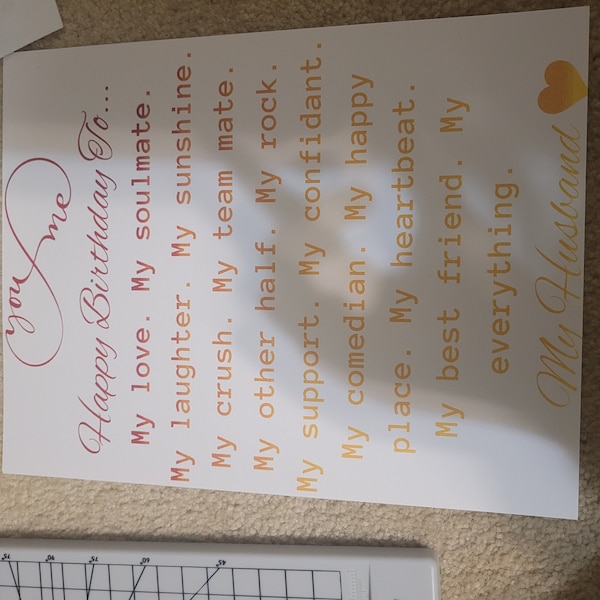 you & me
Happy Birthday To...
My love. My soulmate.
My laughter. My sunshine.
My crush. My team mate.
My other half. My rock.
My support. My confidant.
My comedian. My happy
place. My heartbeat.
My best friend. My
everything.
My Husband
75°
90°
75°
60°
45°